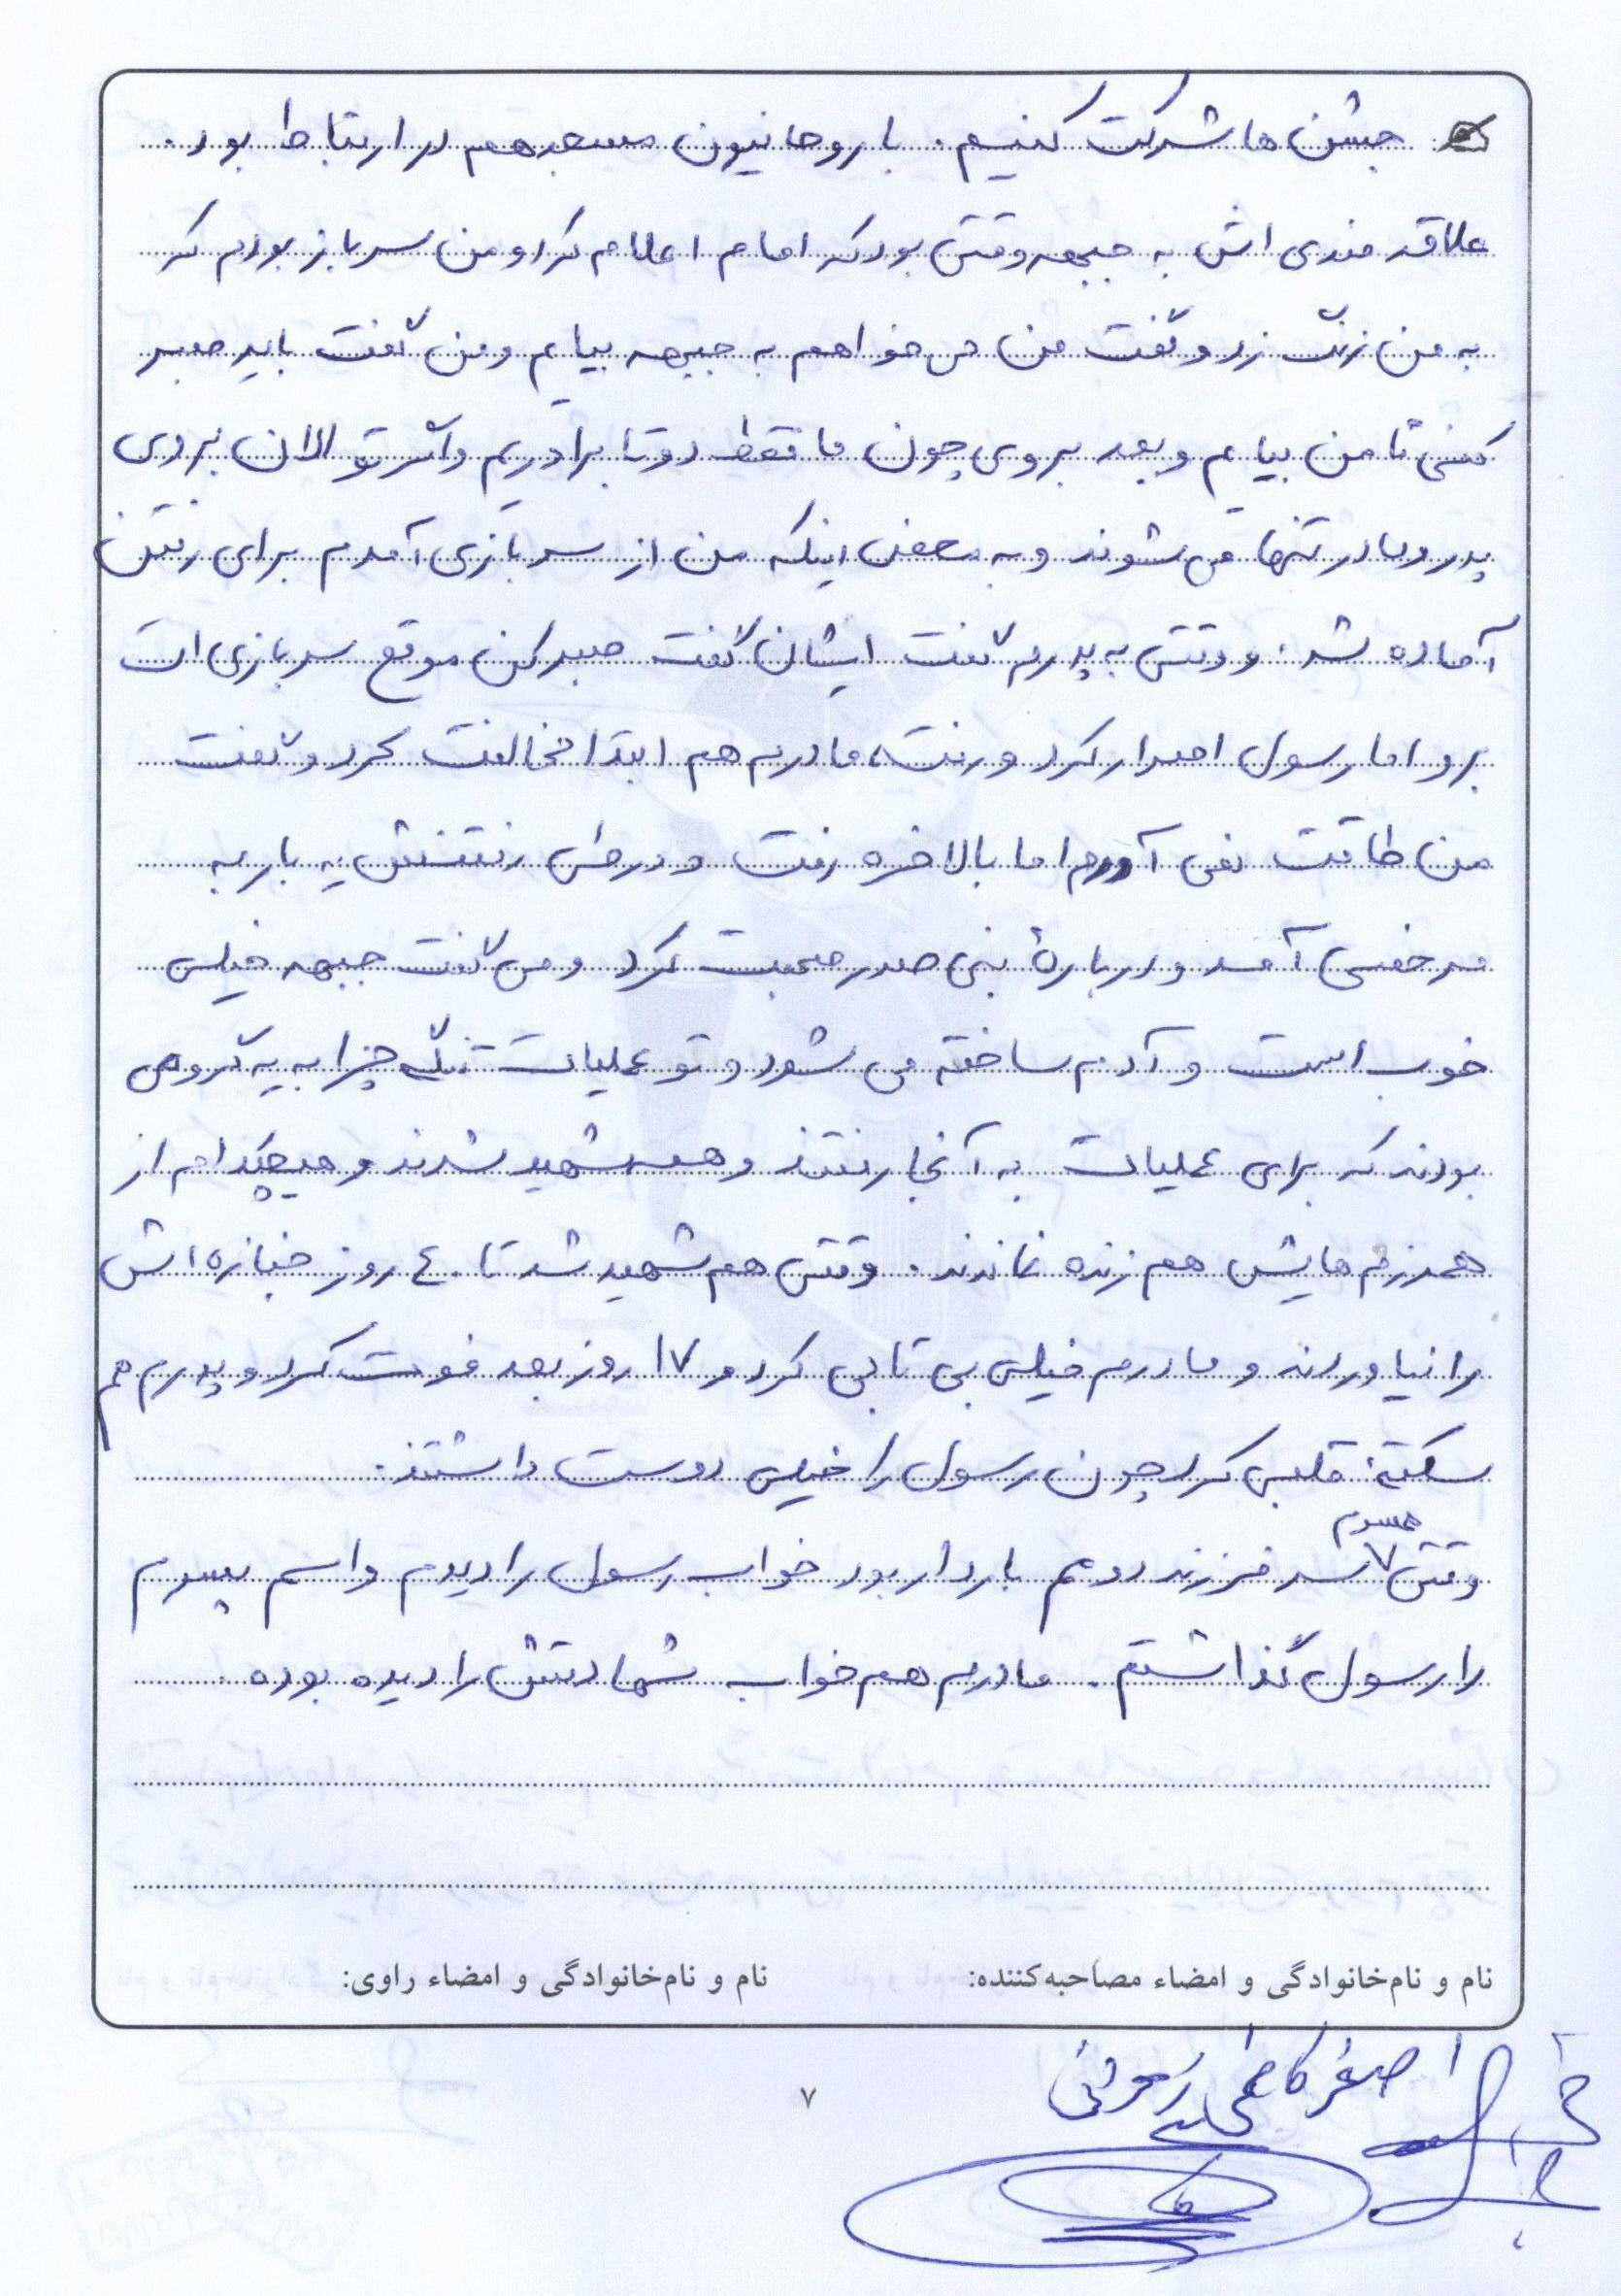 جشن ها شرکت کنیم. با روحانیون مسجد هم در ارتباط بود.
علاقه مندی اش به جبهه وقتی بود که امام اعلام کرد و من سرباز بودم که
به من زنگ زد و گفت من می خواهم به جبهه بیایم و من گفت باید صبر
کنی تا من بیایم و بعد بروی چون ما فقط دو تا برادریم و اگر تو الان بروی
پدر و مادر تنها می شوند و به محض اینکه من از سربازی آمدم برای رفتن
آماده شد. و وقتی به پدرم گفت ایشان گفت صبر کن موقع سربازی ات
برو اما رسول اصرار کرد و رفت، مادرم هم ابتدا مخالفت کرد و گفت
من طاقت نمی آورم اما بالاخره رفت و در طی رفتنش یه بار به
مرخصی آمد و دربارهٔ بنی صدر صحبت کرد و می گفت جبهه خیلی
خوب است و آدم ساخته می شود و تو عملیات تنگه چزابه یه گروهی
بودند که برای عملیات به آنجا رفتند و همه شهید شدند و هیچکدام از
همرزم هایش هم زنده نماندند. وقتی هم شهید شد تا ۴۰ روز جنازه اش
را نیاوردند و مادرم خیلی بی تابی کرد و ۱۷ روز بعد فوت کرد و پدرم هم
سکتهٔ قلبی کرد چون رسول را خیلی دوست داشتند.
همسرم
وقتی ۷ سر فرزند دوم باردار بود خواب رسول را دیدم و اسم پسرم
را رسول گذاشتم. مادرم هم خواب شهادتش را دیده بوده.
نام و نام‌خانوادگی و امضاء مصاحبه‌کننده: نام و نام‌خانوادگی و امضاء راوی:
اصغر کاظمی
۷